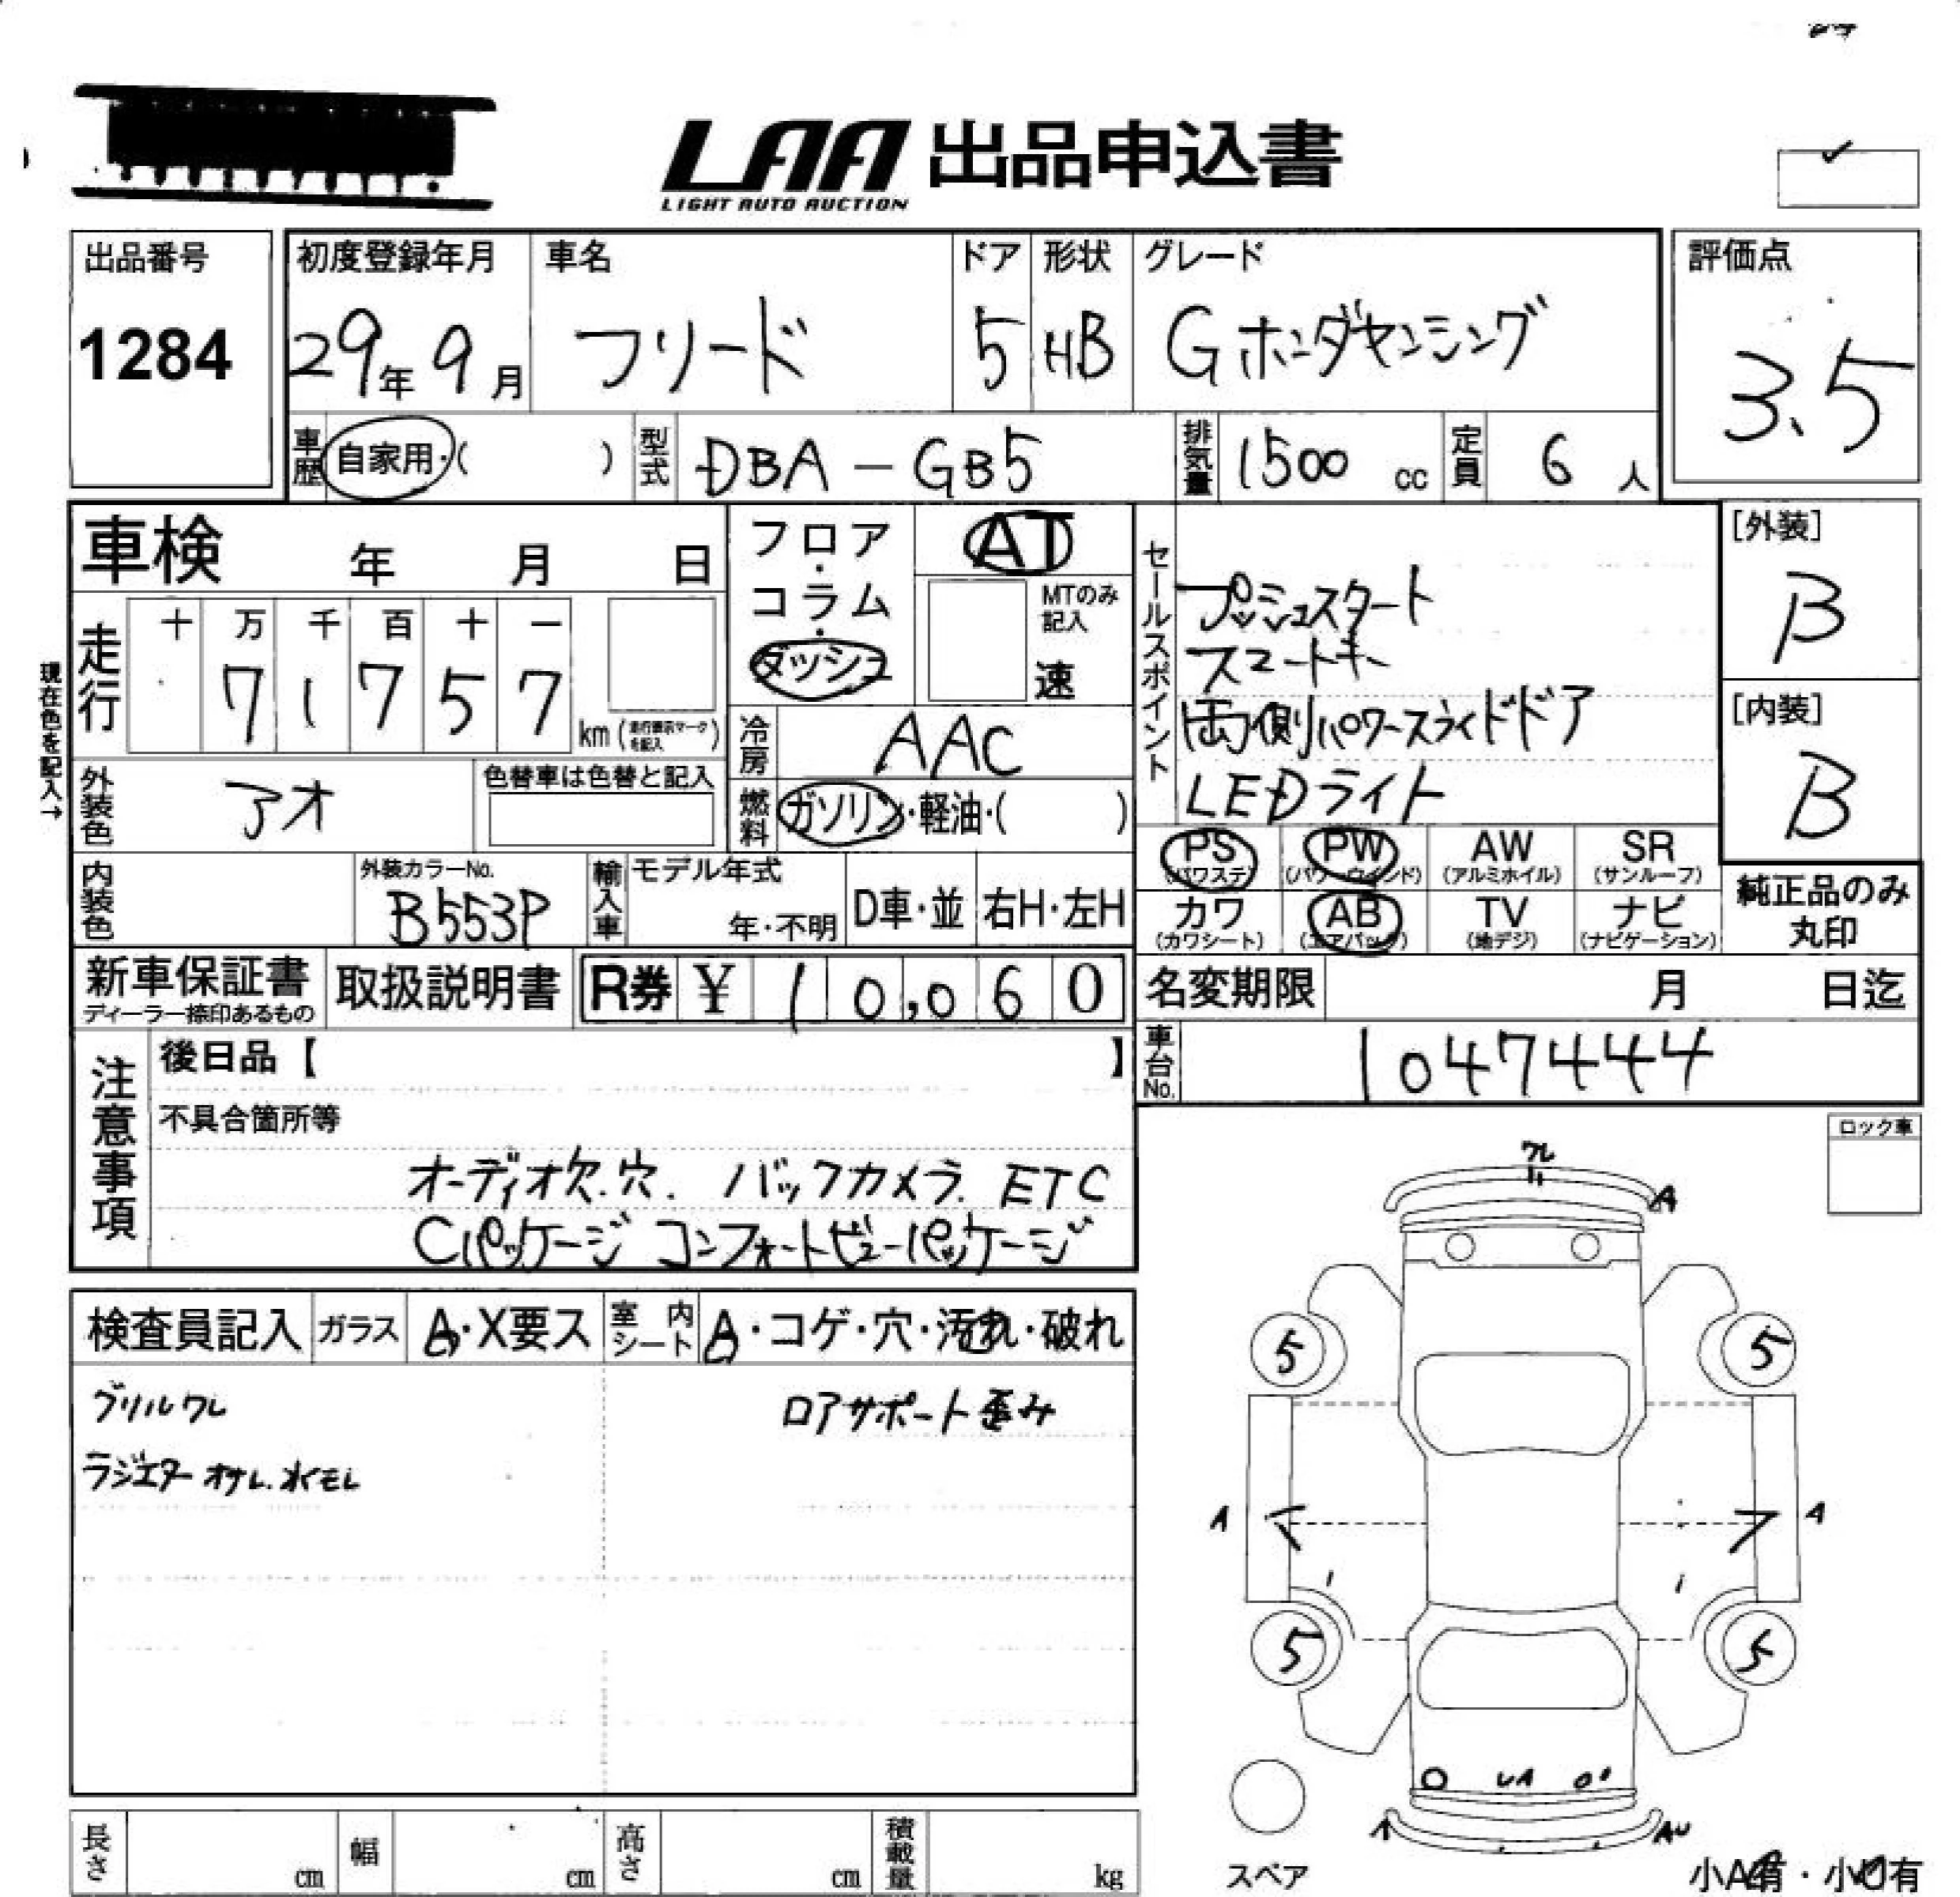 LAA 出品申込書
LIGHT AUTO AUCTION
出品番号
1284
初度登録年月 車名 ドア 形状 グレード
29年 9月 フリード 5 HB Gホンダセンシング
評価点
3.5
車歴 自家用・( ) 型式 DBA-GB5 排気量 1500 cc 定員 6 人
車検 年 月 日
フロア・コラム・ダッシュ
AT
MTのみ記入
速
走行 十 万 千 百 十 一
71757
km (走行表示マークを記入)
現在色を記入→
外装色 アオ 色替車は色替と記入
冷房 AAC
燃料 ガソリン・軽油・( )
セールスポイント
プッシュスタート
スマートキー
両側パワースライドドア
LEDライト
[外装]
B
[内装]
B
内装色 外装カラーNo. B553P
輸入車 モデル年式 年・不明 D車・並 右H・左H
PS(パワステ) PW(パワーウインド) AW(アルミホイル) SR(サンルーフ)
カワ(カワシート) AB(エアバッグ) TV(地デジ) ナビ(ナビゲーション)
純正品のみ
丸印
新車保証書 取扱説明書 R券 ¥ 10,060
ディーラー捺印あるもの
名変期限 月 日迄
車台No. 1047444
注意事項
後日品【 】
不具合箇所等
オーディオ欠.穴. バックカメラ. ETC
Cパッケージ コンフォートビューパッケージ
ロック車
検査員記入 ガラス A・X要ス 室内シート A・コゲ・穴・汚れ・破れ
グリルワレ ロアサポート歪み
ラジエター オサレ.水モレ
ワレ
A
5 5
A A
5 5
UA
A AU
スペア
小A有・小U有
長さ cm 幅 cm 高さ cm 積載量 kg